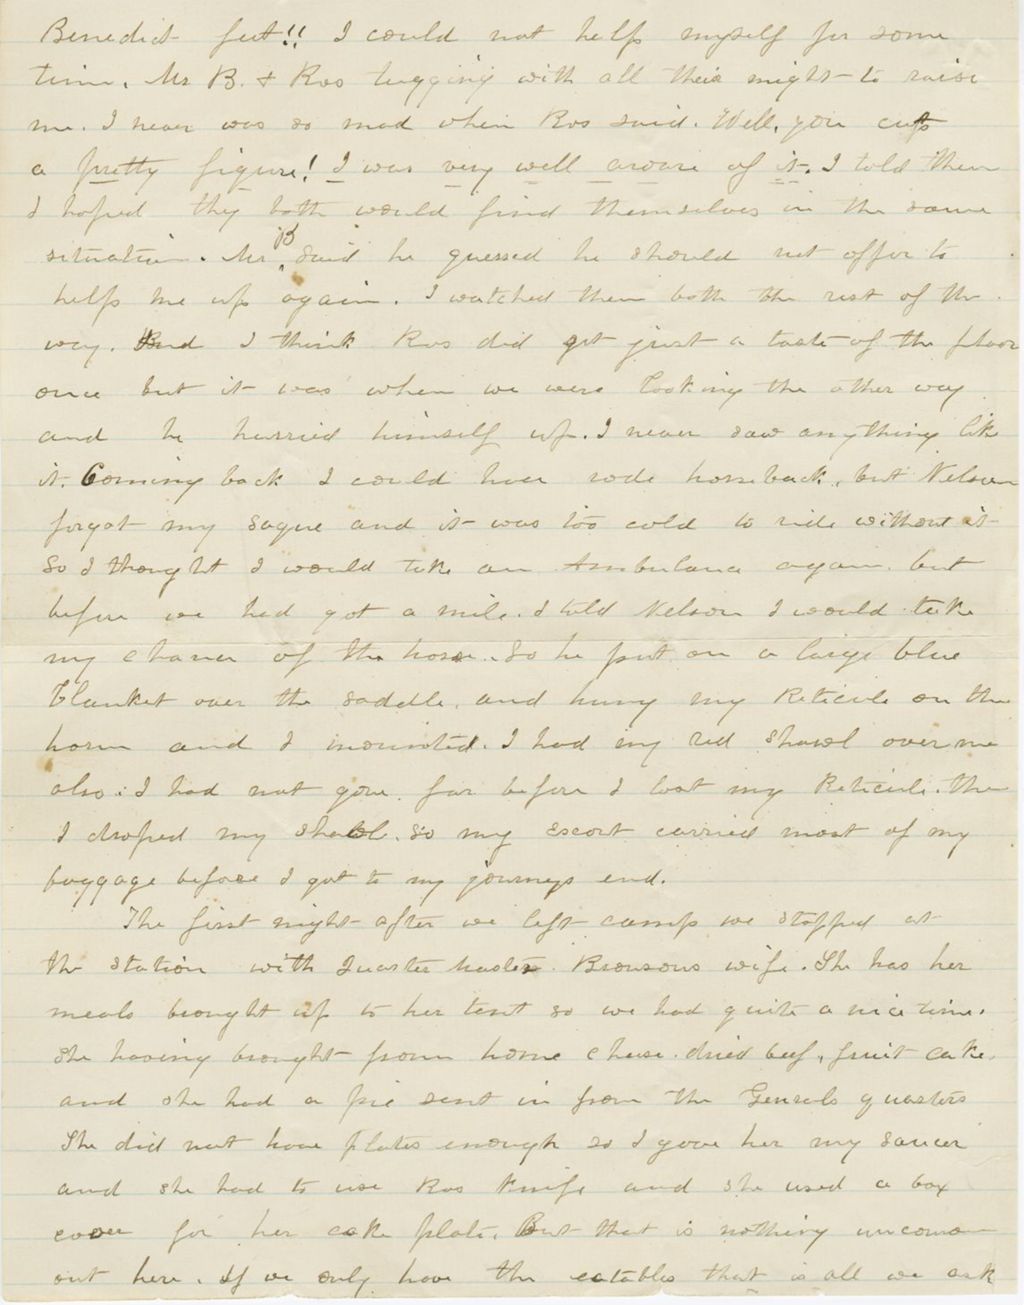 Benedict feet!! I could not help myself for some
time, Mr B. & Ros tugging with all their might to raise
me. I never was so mad when Ros said. Well, you cut
a pretty figure! I was very well aware of it. I told them
I hoped they both would find themselves in the same
situation. Mr B said he guessed he should not offer to
help me up again. I watched them both the rest of the
way. And I think Ros did get just a taste of the floor
once but it was when we were looking the other way
and he hurried himself up. I never saw anything like
it. Coming back I could have rode horseback, but Nelson
forgot my saque and it was too cold to ride without it
So I thought I would take an Ambulance again. but
before we had got a mile. I told Nelson I would take
my chance of the horse. So he put on a large blue
blanket over the saddle, and hung my Reticule on the
horn and I mounted. I had my red Shawl over me
also. I had not gone far before I lost my Reticule. then
I droped my shawl. so my escort carried most of my
baggage before I got to my journeys end.
The first night after we left camp we stopped at
the station with Quarter Master Bronsons wife. She has her
meals brought up to her tent so we had quite a nice time.
She having brought from home cheese. dried beef, fruit cake,
and she had a pie sent in from the Generals quarters
She did not have plates enough so I gave her my saucer
and she had to use Ros knife and she used a box
cover for her cake plate. But that is nothing uncommon
out here. If we only have the eatables that is all we ask